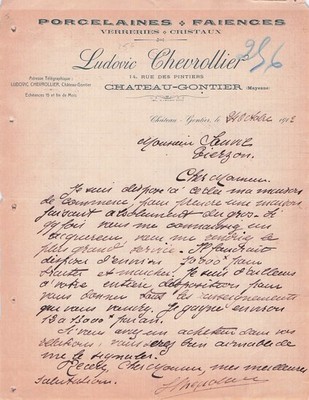 PORCELAINES + FAIENCES
VERRERIES + CRISTAUX
Ludovic Chevrollier
256
14, RUE DES PINTIERS
CHATEAU-GONTIER (Mayenne)
Adresse Télégraphique :
LUDOVIC CHEVROLLIER, Château-Gontier
Echéances 15 et fin de Mois
Château-Gontier, 24 octobre 1912
Monsieur
Vierzon
Cher Monsieur
Je suis disposé à céder ma maison
de commerce pour prendre une maison
faisant absolument du gros. Si
vous me connaissez un
acquéreur, vous me rendriez le
plus grand service. Il faudrait
disposer d'environ pour
traiter et marcher. Je suis d'ailleurs
à votre entière disposition pour
vous donner tous les renseignements
que vous voudrez. Je gagne environ
12 à 13000 par an.
Si vous avez un acheteur dans vos
relations, vous serez bien aimable de
me le signaler.
Recevez, Cher Monsieur, mes meilleures
salutations.